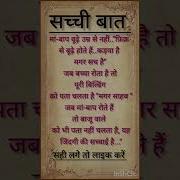 सच्ची बात
मां-बाप बूढ़े उम्र से नहीं.."फ़िक्र
से बूढ़े होते हैं..कड़वा है
मगर सच है"
जब बच्चा रोता है तो
पूरी बिल्डिंग
को पता चलता है "मगर साहब "
जब मां-बाप रोते हैं
तो बाजू वाले
को भी पता नहीं चलता है, यह
जिंदगी की सच्चाई है..."
सही लगे तो लाइक करें